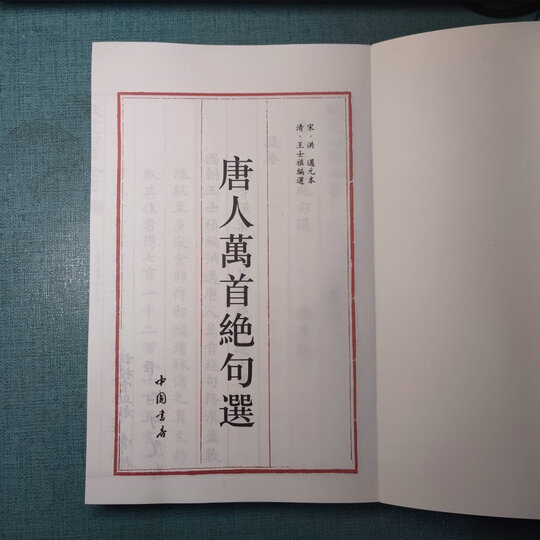 宋·洪 邁元本
清·王士禛編選
唐人萬首絶句選
中国书店